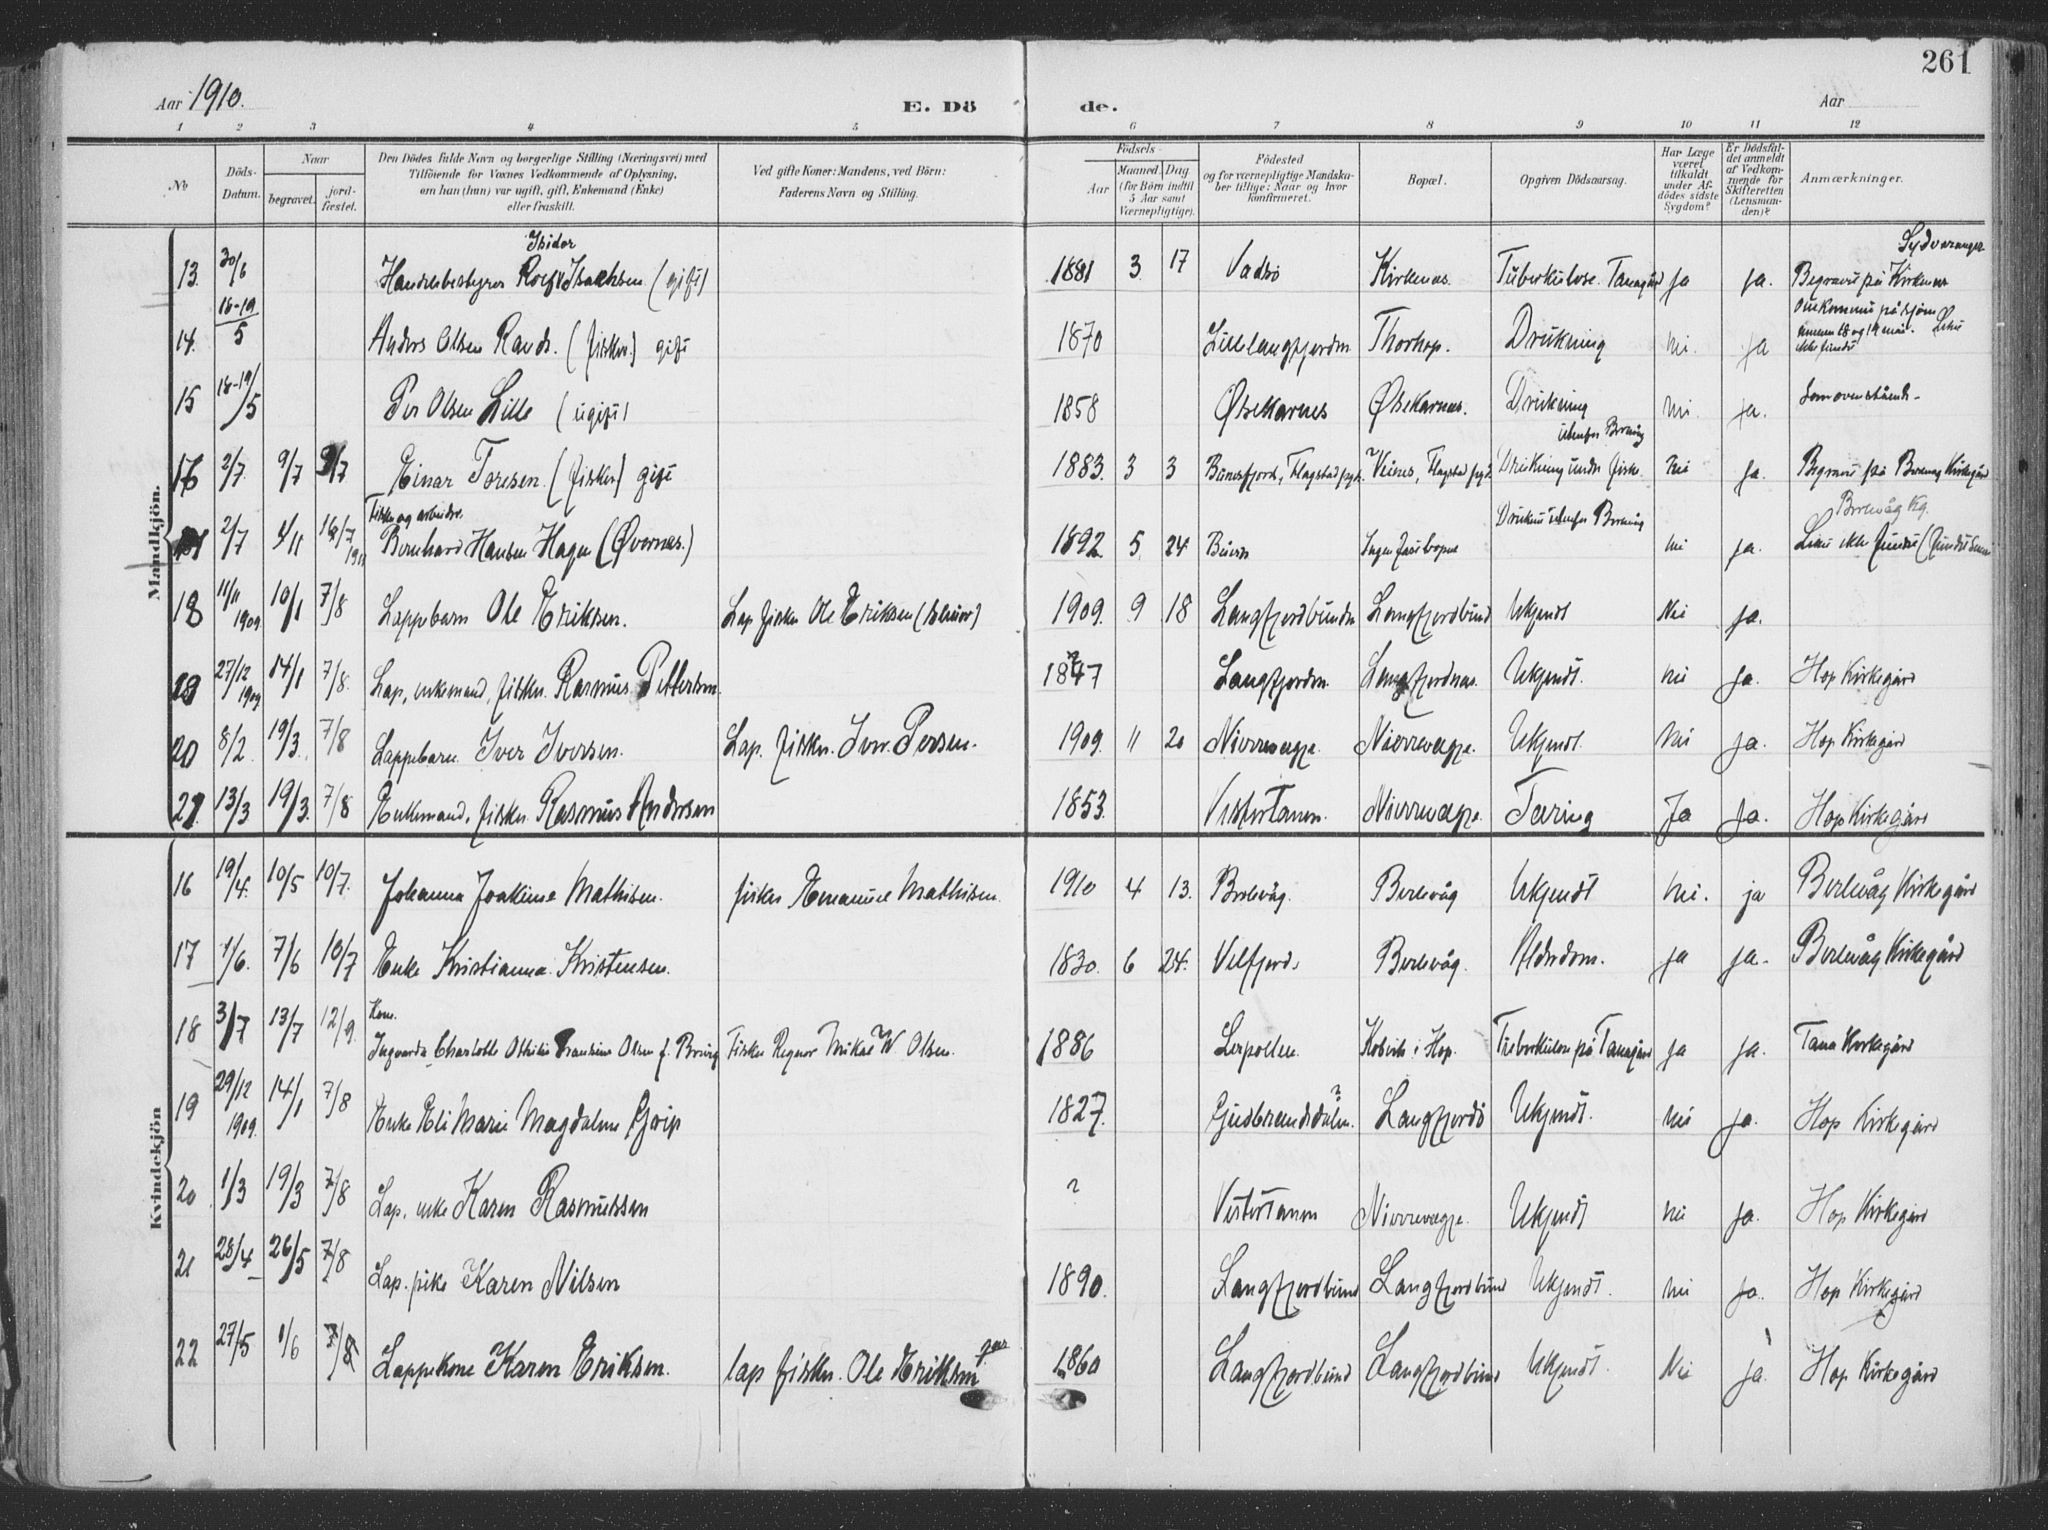 261
Aar 1910.
E. Dö
de.
Aar
1 2 3 4 5 6 7 8 9 10 11 12
No
Döds-Datum.
Naar
begravet.
jord-fæstet.
Den Dödes fulde Navn og borgerlige Stilling (Næringsvei) med
Tilföiende for Voxnes Vedkommende af Oplysning,
om han (hun) var ugift, gift, Enkemand (Enke)
eller fraskilt.
Ved gifte Koner: Mandens, ved Börn:
Faderens Navn og Stilling.
Födsels-
Aar
Maaned. Dag
(for Börn indtil
5 Aar samt
Værnepligtige).
Födested
og for værnepligtige Mandska-
ber tillige: Naar og hvor
konfirmeret.
Bopæl.
Opgiven Dödsaarsag.
Har Læge
været
tilkaldt
under Af-
dödes sidste
Sygdom?
Er Dödsfal-
det anmeldt
af Vedkom-
mende for
Skifteretten
(Lensman-
den)?
Anmærkninger.
Mandkjön.
Isidor
Sydvaranger
13. 30/6 Handelsbestyrer Rolf Isachsen (gift) 1881 3 17 Vadsö Kirkenes. Tuberkulose. Tanagård ja ja. Begravet på Kirkenes
14. 18-19/5 Anders Olsen Rand. (fisker) gift 1870 Lillelangfjorden Thorhop. Drukning nei. ja Omkommet på sjöen
18 og 19 mai. Liket
ikke fundet
15 18-19/5 Per Olsen Lille (ugift) 1858 Östkarnes Östkarnes. Drukning nei. ja. Som ovenstående
16 2/7 9/7 9/7 Einar Toresen (fisker) gift 1883 3 3 Flagstad Drukning under fiske. nei ja. Begravet på Berlevåg Kirkegård
Fisker og arbeider.
2/7 4/11 1911 Bernhard Hansen Hagen (Övernes.) 1892 5 24 Ingen fast bopæl nei ja. Liket ikke fundet
18 11/11 1909 10/1 7/8 Lappebarn Ole Eriksen. Lap fisker Ole Eriksen 1909. 9 18 Langfjordbunden Langfjordbund Ukjendt Nei ja.
19 27/12 1909 14/1 7/8. Lap, enkemand, fisker. Rasmus Pettersen. 1847 Langfjorden. Langfjordnes. Ukjendt. nei ja. Hop Kirkegård
20 8/2. 19/3. 7/8 Lappebarn. Iver Iversen. Lap. fisker. Iver Persen. 1909. 11 20 Niorrevagge. Niorrevagge. Ukjendt. nei ja. Hop Kirkegård
21. 13/3 19/3. 7/8 Enkemand, fisker Rasmus Andersen 1853. Vestertanen. Niorrevagge. Tæring Ja Ja. Hop Kirkegård
Kvindekjön
16 19/4. 10/5 10/7. Johanna Joakime Mathisen. fisker Emanuel Mathisen. 1910 4 13. Berlevåg. Berlevåg Ukjendt nei. ja Berlevåg Kirkegård
17 1/6. 7/6 10/7 Enke Kristianna Kristensen. 1830. 6 24. Velfjord. Berlevåg. Alderdom. ja ja. Berlevåg Kirkegård
Kone.
18 3/7 13/7 12/9. Ingvarda Charlotte Othilie Fransine Olsen f. Fisker Regnor Mikal W Olsen. 1886 Leirpollen. i Hop. Tuberkulose på Tanagård ja ja. Tana Kirkegård
19 29/12 1909. 14/1 7/8 Enke Eli Marie Magdalene Grip 1827. Gudbrandsdalen. ? Langfjord Ukjendt. nei ja. Hop Kirkegård
20 1/3 19/3 7/8 Lap. enke Karen Rasmussen ? Vestertanen Niorrevagge. Ukjendt nei ja. Hop Kirkegård
21 28/4 26/5 7/8 Lap. pike Karen Nilsen 1890. Langfjordbund Langfjordbund Ukjendt. nei ja. Hop Kirkegård
22 27/5 1/6 7/8 Lappekone Karen Eriksen. lap fisker. Ole Eriksen 1860 Langfjordbund Langfjordbund Ukjendt. Nei ja. Hop Kirkegård